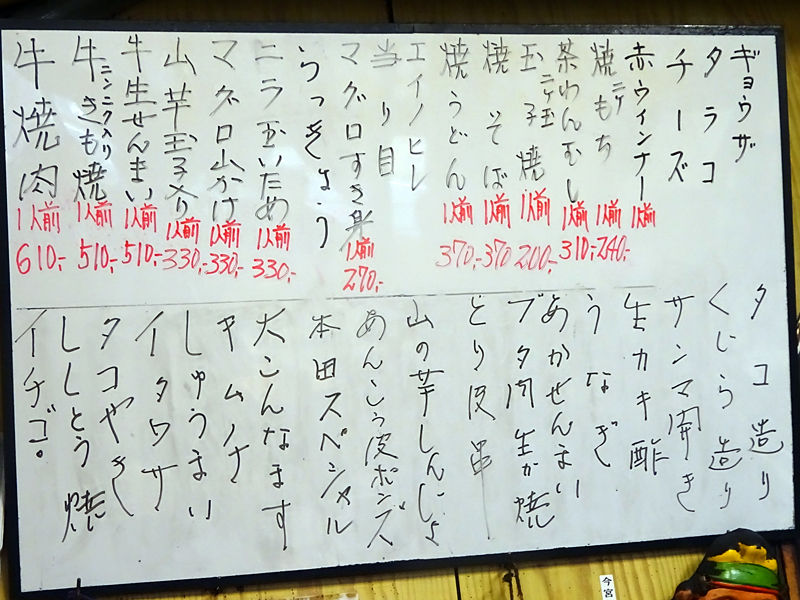 ギョウザ
タラコ
チーズ
赤ウインナー 1人前
焼もち 2ケ 1人前 240.-
茶わんむし 1人前 310.-
玉子焼 2ケ玉 1人前 200.-
焼そば 1人前 370
焼うどん 1人前 370.-
エイノヒレ
当り目
マグロすき身 1人前 270.-
らっきょう
ニラ玉いため 1人前 330.-
マグロ山かけ 1人前 330.-
山芋玉子入り 1人前 330.-
牛生せんまい 1人前 510.-
牛きも焼 ニンニク入り 1人前 510.-
牛焼肉 1人前 610.-
タコ造り
くじら造り
サンマ開き
生カキ酢
うなぎ
あかせんまい
ブタ肉生が焼
とり皮串
山の芋しんじょ
あんこう皮ポンズ
本田スペシャル
大こんなます
キムチ
しゅうまい
イタワサ
タコやき
ししとう焼
イチゴ。
今宮